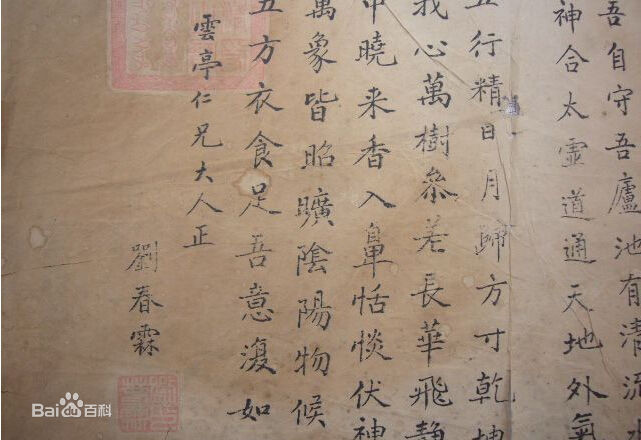 吾自守吾廬池有清流
神合太虛道通天地外氣
五行精日月歸方寸乾坤
我心萬樹參差長華飛靜
中曉来香入鼻恬惔伏神
萬象皆昭曠陰陽物候
五方衣食足吾意澓如
雲亭仁兄大人正
劉春霖
Bai百科